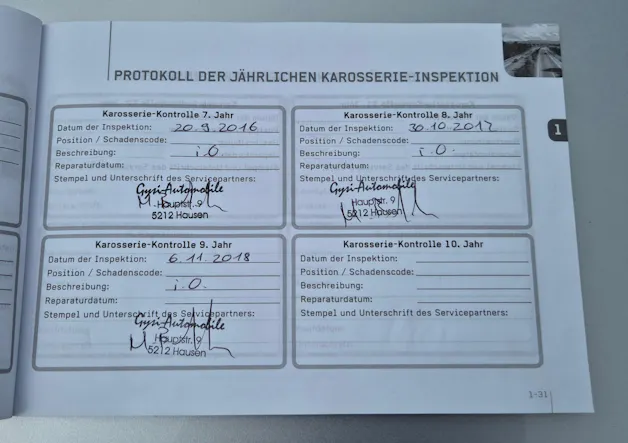 PROTOKOLL DER JÄHRLICHEN KAROSSERIE-INSPEKTION
1
Karosserie-Kontrolle 7. Jahr
Datum der Inspektion: 20.9.2016
Position / Schadenscode:
Beschreibung: i.O
Reparaturdatum:
Stempel und Unterschrift des Servicepartners:
Gysi-Automobile
Hauptstr. 9
5212 Hausen
Karosserie-Kontrolle 8. Jahr
Datum der Inspektion: 30.10.2017
Position / Schadenscode:
Beschreibung: i.O.
Reparaturdatum:
Stempel und Unterschrift des Servicepartners:
Gysi-Automobile
Hauptstr. 9
5212 Hausen
Karosserie-Kontrolle 9. Jahr
Datum der Inspektion: 6.11.2018
Position / Schadenscode:
Beschreibung: i.O.
Reparaturdatum:
Stempel und Unterschrift des Servicepartners:
Gysi-Automobile
Hauptstr. 9
5212 Hausen
Karosserie-Kontrolle 10. Jahr
Datum der Inspektion:
Position / Schadenscode:
Beschreibung:
Reparaturdatum:
Stempel und Unterschrift des Servicepartners:
1-31